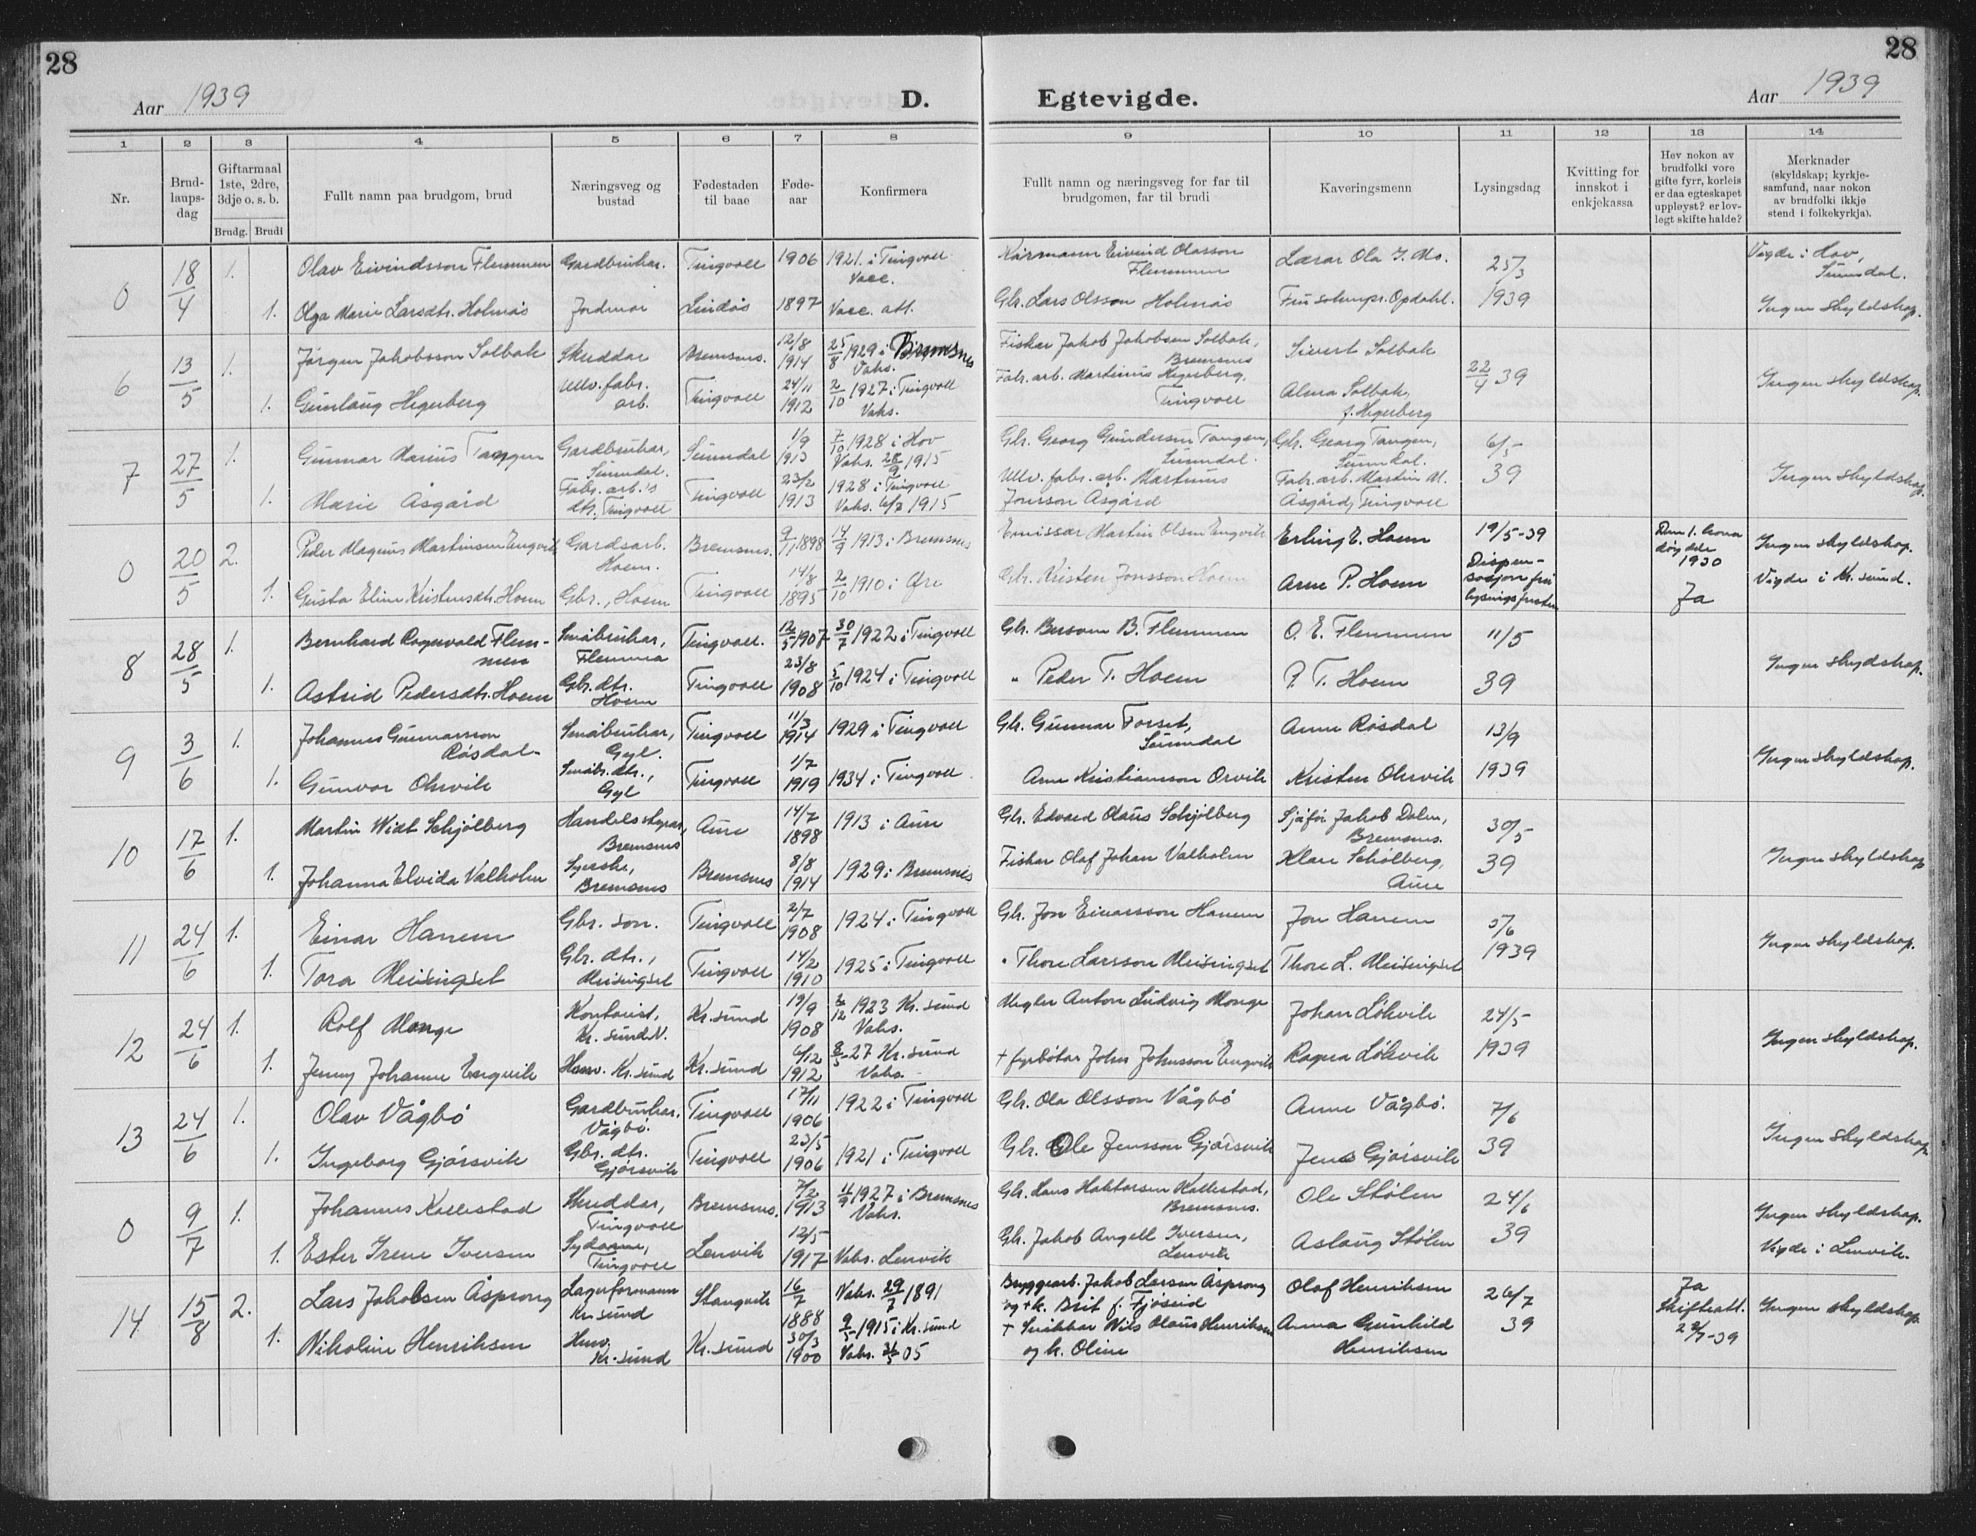 28
28
Aar 1939
D.
Egtevigde.
Aar 1939
1 2 3 4 5 6 7 8 9 10 11 12 13 14
Nr.
Brud-
laups-
dag
Giftarmaal
1ste, 2dre,
3dje o. s. b.
Brudg. Brudi
Fullt namn paa brudgom, brud
Næringsveg og
bustad
Fødestaden
til baae
Føde-
aar
Konfirmera
Fullt namn og næringsveg for far til
brudgomen, far til brudi
Kaveringsmenn
Lysingsdag
Kvitting for
innskot i
enkjekassa
Hev nokon av
brudfolki vore
gifte fyrr, korleis
er daa egteskapet
uppløyst? er lov-
legt skifte halde?
Merknader
(skyldskap; kyrkje-
samfund, naar nokon
av brudfolki ikkje
stend i folkekyrkja).
0 18/4 1. Olav Eivindsson Flemmen Gardbrukar. Tingvoll 1906 1921 i Tingvoll Vacc. Kårmann Eivind Olasson Flemmen Lærar Ola J. Mo. 25/3 Vigde i Hov, Sunndal.
1. Olga Marie Larsdtr. Holmås Jordmor Lindås 1897 Vacc. att. Gbr. Lars Olsson Holmås 1939 Ingen skyldskap.
6 13/5 1. Jørgen Jakobsson Solbak Skreddar Bremsnes. 12/8 1914 25/8 1929 i Bremsnes Vaks. Fiskar Jakob Jakobsen Solbak, Bremsnes Sivert Solbak 22/4 39 Ingen skyldskap.
1. Gunlaug Hegerberg Ullv. fabr. arb. Tingvoll 24/11 1912 2/10 1927 i Tingvoll Vaks. Fabr. arb. Martinus Hegerberg, Tingvoll Alma Solbak, f. Hegerberg
7 27/5 1. Gunnar Marius Tangen Gardbrukar, Sunndal. Sunndal 1/9 1913 7/10 1928 i Hov Vaks. 28/9 1915 Gbr. Georg Gundersen Tangen, Sunndal. Gbr. Georg Tangen, Sunndal. 6/5 39 Ingen skyldskap.
1. Marie Åsgård Fabr. arb.'s dtr. Tingvoll Tingvoll 23/2 1913 1928 i Tingvoll Vaks. 6/7 1915 Ullv. fabr. arb. Martinus Jonsson Åsgård Fabr. arb. Martin M. Åsgård, Tingvoll
0 20/5 2. Peder Magnus Martinsen Engvik Gardsarb. Hoem. Bremsnes. 9/11 1898 14/9 1913 i Bremsnes Emissær Martin Olsen Engvik Erling E. Hoem 19/5-39 Dem 1. kona døydde 1930 Ingen skyldskap.
1. Gusta Eline Kristensdtr. Hoem Gbr., Hoem Tingvoll 14/8 1895 2/10 1910 i Øre Gbr. Kristen Jonsson Hoem Arne P. Hoem Dispen-sasjon frå lysingsfristen Ja Vigde i Kr. sund.
8 28/5 1. Bernhard Ragnvald Flem-men Småbrukar, Flemma Tingvoll. 12/5 1907 30/7 1922 i Tingvoll Gbr. Bersvem B. Flemmen O. E. Flemmen 11/5 Ingen skydskap.
1. Astrid Pedersdtr. Hoem Gbr. dtr. Hoem Tingvoll 23/8 1908 5/10 1924 i Tingvoll " Peder T. Hoem P. T. Hoem 39
9 3/6 1. Johannes Gunnarsson Røsdal Småbrukar, Gyl. Tingvoll 11/3 1914 1929 i Tingvoll Gbr. Gunnar Forset, Sunndal Anne Røsdal 13/9 Ingen skyldskap.
1. Gunvor Orvik Småbr. dtr., Gyl Tingvoll 1/7 1919 1934 i Tingvoll Arne Kristiansson Orvik Kristen Orvik 1939
10 17/6 1. Martin Widt Schjølberg Handelsstyrar, Bremsnes Aure 14/7 1898 1913 i Aure Gbr. Edvard Olaus Schjølberg Sjåfør Jakob Dalen, Bremsnes. 30/5 Ingen skyldskap.
1. Johanna Elvida Valholm Syerske, Bremsnes Bremsnes 8/8 1914 1929 i Bremsnes Fiskar Olaf Johan Valholm Klare Schølberg, Aure 39
11 24/6 1. Einar Hanem Gbr. son. Tingvoll 2/7 1908 1924 i Tingvoll Gbr. Jon Einarsson Hanem Jon Hanem 5/6 Ingen skyldskap.
1. Tora Meisingset Gbr. dtr., Meisingset Tingvoll 14/2 1910 1925 i Tingvoll " Thore Larsson Meisingset Thore L. Meisingset 1939
12 24/6 1. Rolf Monge Kontorist, Kr. sund N. Kr. sund 19/9 1908 2/12 1923 Kr. sund Vaks. Megler Anton Ludvig Monge Johan Løkvik 24/5 Ingen skyldskap.
1. Jenny Johanne Engvik Husv. Kr. sund Kr. sund 6/12 1912 8/5-27 Kr. sund Vaks. + fyrbøtar Johan Johnsson Engvik Ragna Løkvik 1939
13 24/6 1. Olav Vågbø Gardbrukar. Vågbø. Tingvoll 17/11 1906 1922 i Tingvoll Gbr. Ola Olsson Vågbø Anne Vågbø. 7/6 Ingen skyldskap.
1. Ingeborg Gjørsvik Gbr. dtr. Gjørsvik Tingvoll 23/5 1906 1921 i Tingvoll Gbr. Ole Jensson Gjørsvik Jens Gjørsvik 39
0 9/7 1. Johannes Kallestad Skreddar, Tingvoll Bremsnes. 7/2 1913 11/9 1927 i Bremsnes Vaks. Gbr. Hans Haktorsen Kallestad, Bremsnes. Ole Stølen 24/6 Ingen skyldskap.
1. Ester Irene Iversen Sydame, Tingvoll Lenvik 12/5 1917 Vaks. Lenvik Gbr. Jakob Angell Iversen, Lenvik Aslaug Stølen 39 Vigde i Lenvik.
14 15/8 2. Lars Jakobsen Åsprong Lagerformann Kr. sund Stangvik 16/7 1888 Vaks. 29/7 1891 Bryggearb. Jakob Larsen Åsprong og + k. Brit f. Fjøseid Olaf Henriksen 26/7 Ja Skifteatt. 22/7-39 Ingen skyldskap.
1. Nikoline Henriksen Husv. Kr. sund Kr. sund 30/3 1900 9/5 1915 i Kr. sund Vaks. 05 + Snikkar Nils Olaus Henriksen og k. Oline Anna Gunhild Henriksen 39